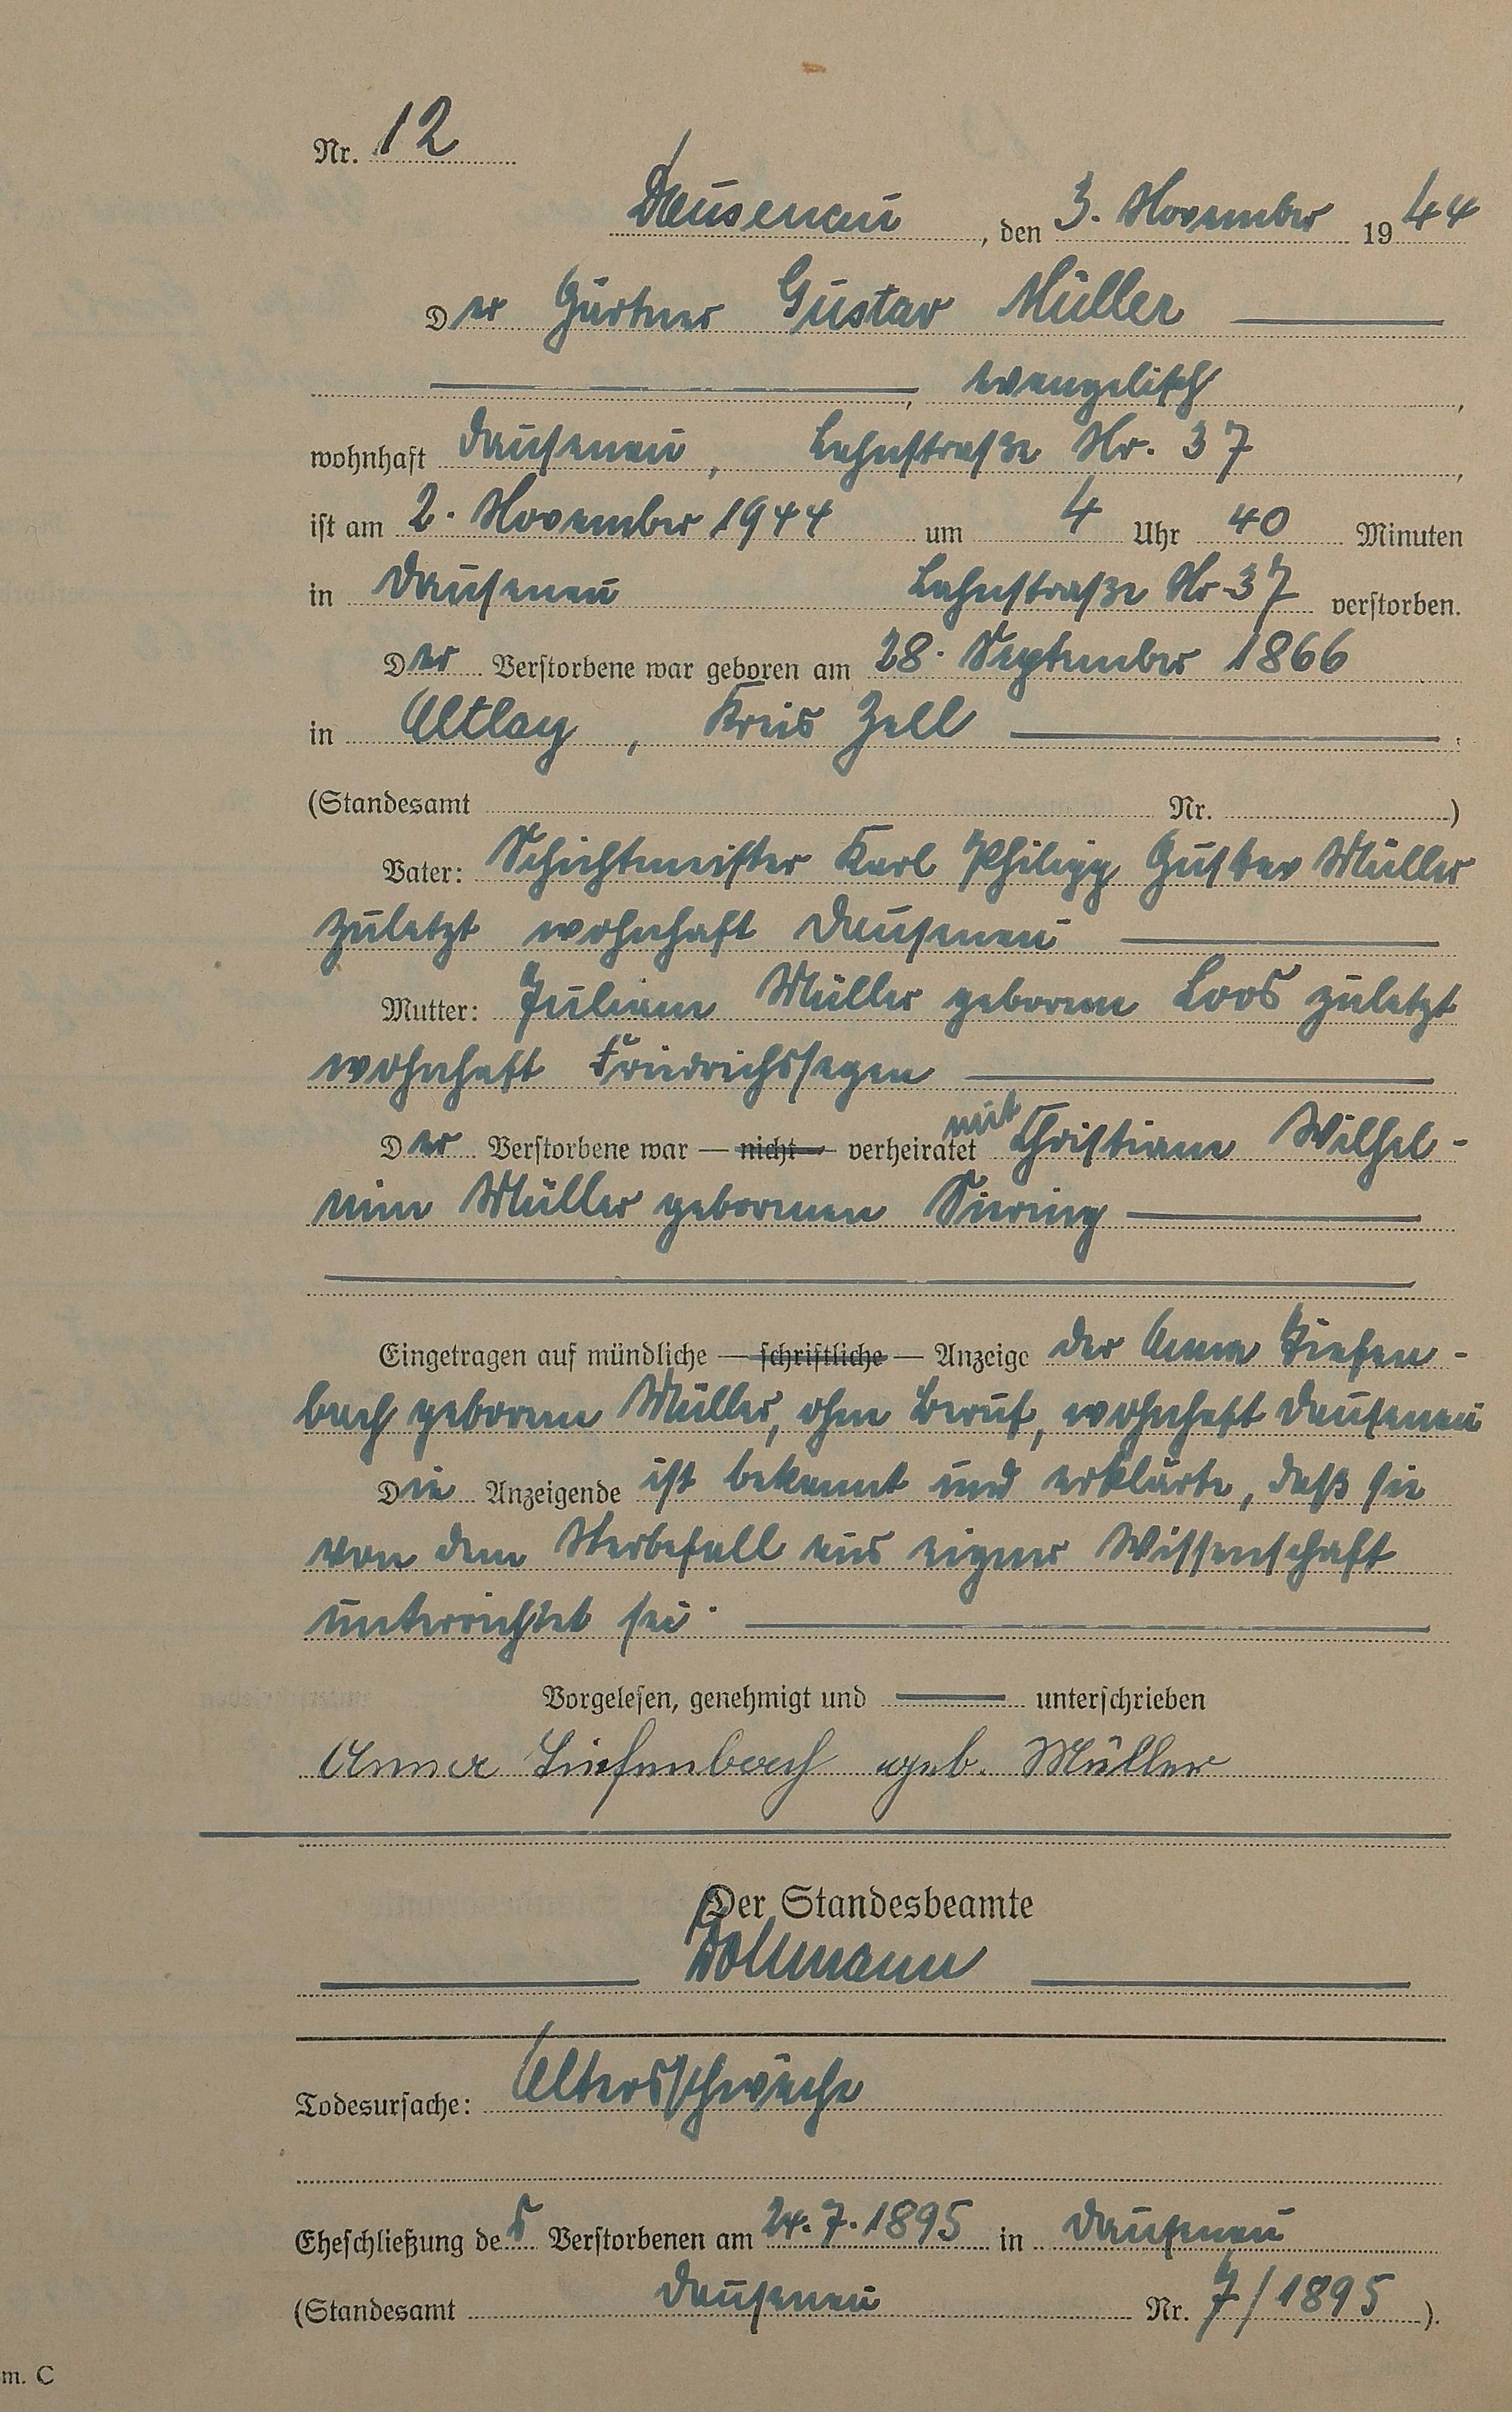 Nr. 12
Dausenau, den 3. November 1944
Der Gärtner Gustav Müller
, evangelisch,
wohnhaft Dausenau, Lahnstraße Nr. 37,
ist am 2. November 1944 um 4 Uhr 40 Minuten
in Dausenau Lahnstraße Nr. 37 verstorben.
Der Verstorbene war geboren am 28. September 1866
in Altlay, Kreis Zell.
(Standesamt Nr. )
Vater: Schichtmeister Karl Philipp Gustav Müller
zuletzt wohnhaft Dausenau
Mutter: Juliane Müller geborene Loos zuletzt
wohnhaft Friedrichssegen
Der Verstorbene war — nicht — verheiratet mit Christiane Wilhel-
mine Müller geborenen Siering
Eingetragen auf mündliche — schriftliche — Anzeige der Anna Tiefen-
bach geborene Müller, ohne Beruf, wohnhaft Dausenau
Die Anzeigende ist bekannt und erklärte, daß sie
von dem Sterbefall aus eigner Wissenschaft
unterrichtet sei.
Vorgelesen, genehmigt und unterschrieben
Anna Tiefenbach geb. Müller
Der Standesbeamte
Todesursache: Altersschwäche
Eheschließung des Verstorbenen am 24.7.1895 in Dausenau
(Standesamt Dausenau Nr. 7/1895).
m. C